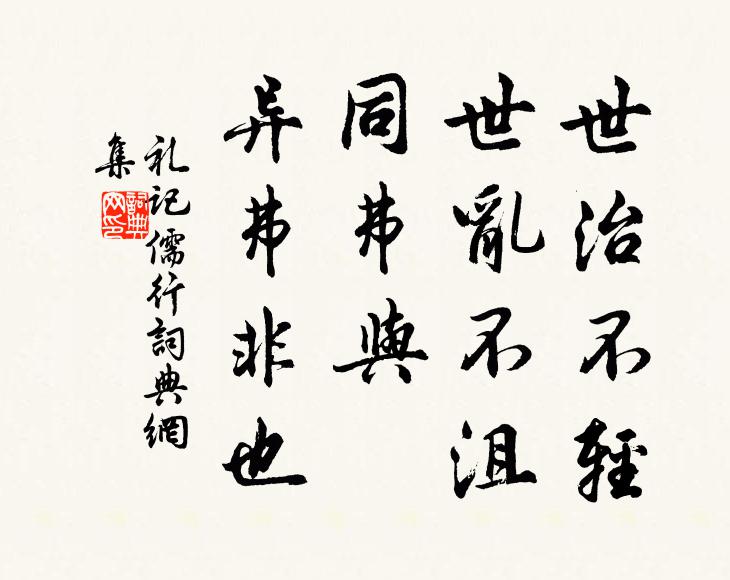 世治不輕
世亂不沮
同弗與
异弗非也
礼記儒行詞典網
集
詞典
网印